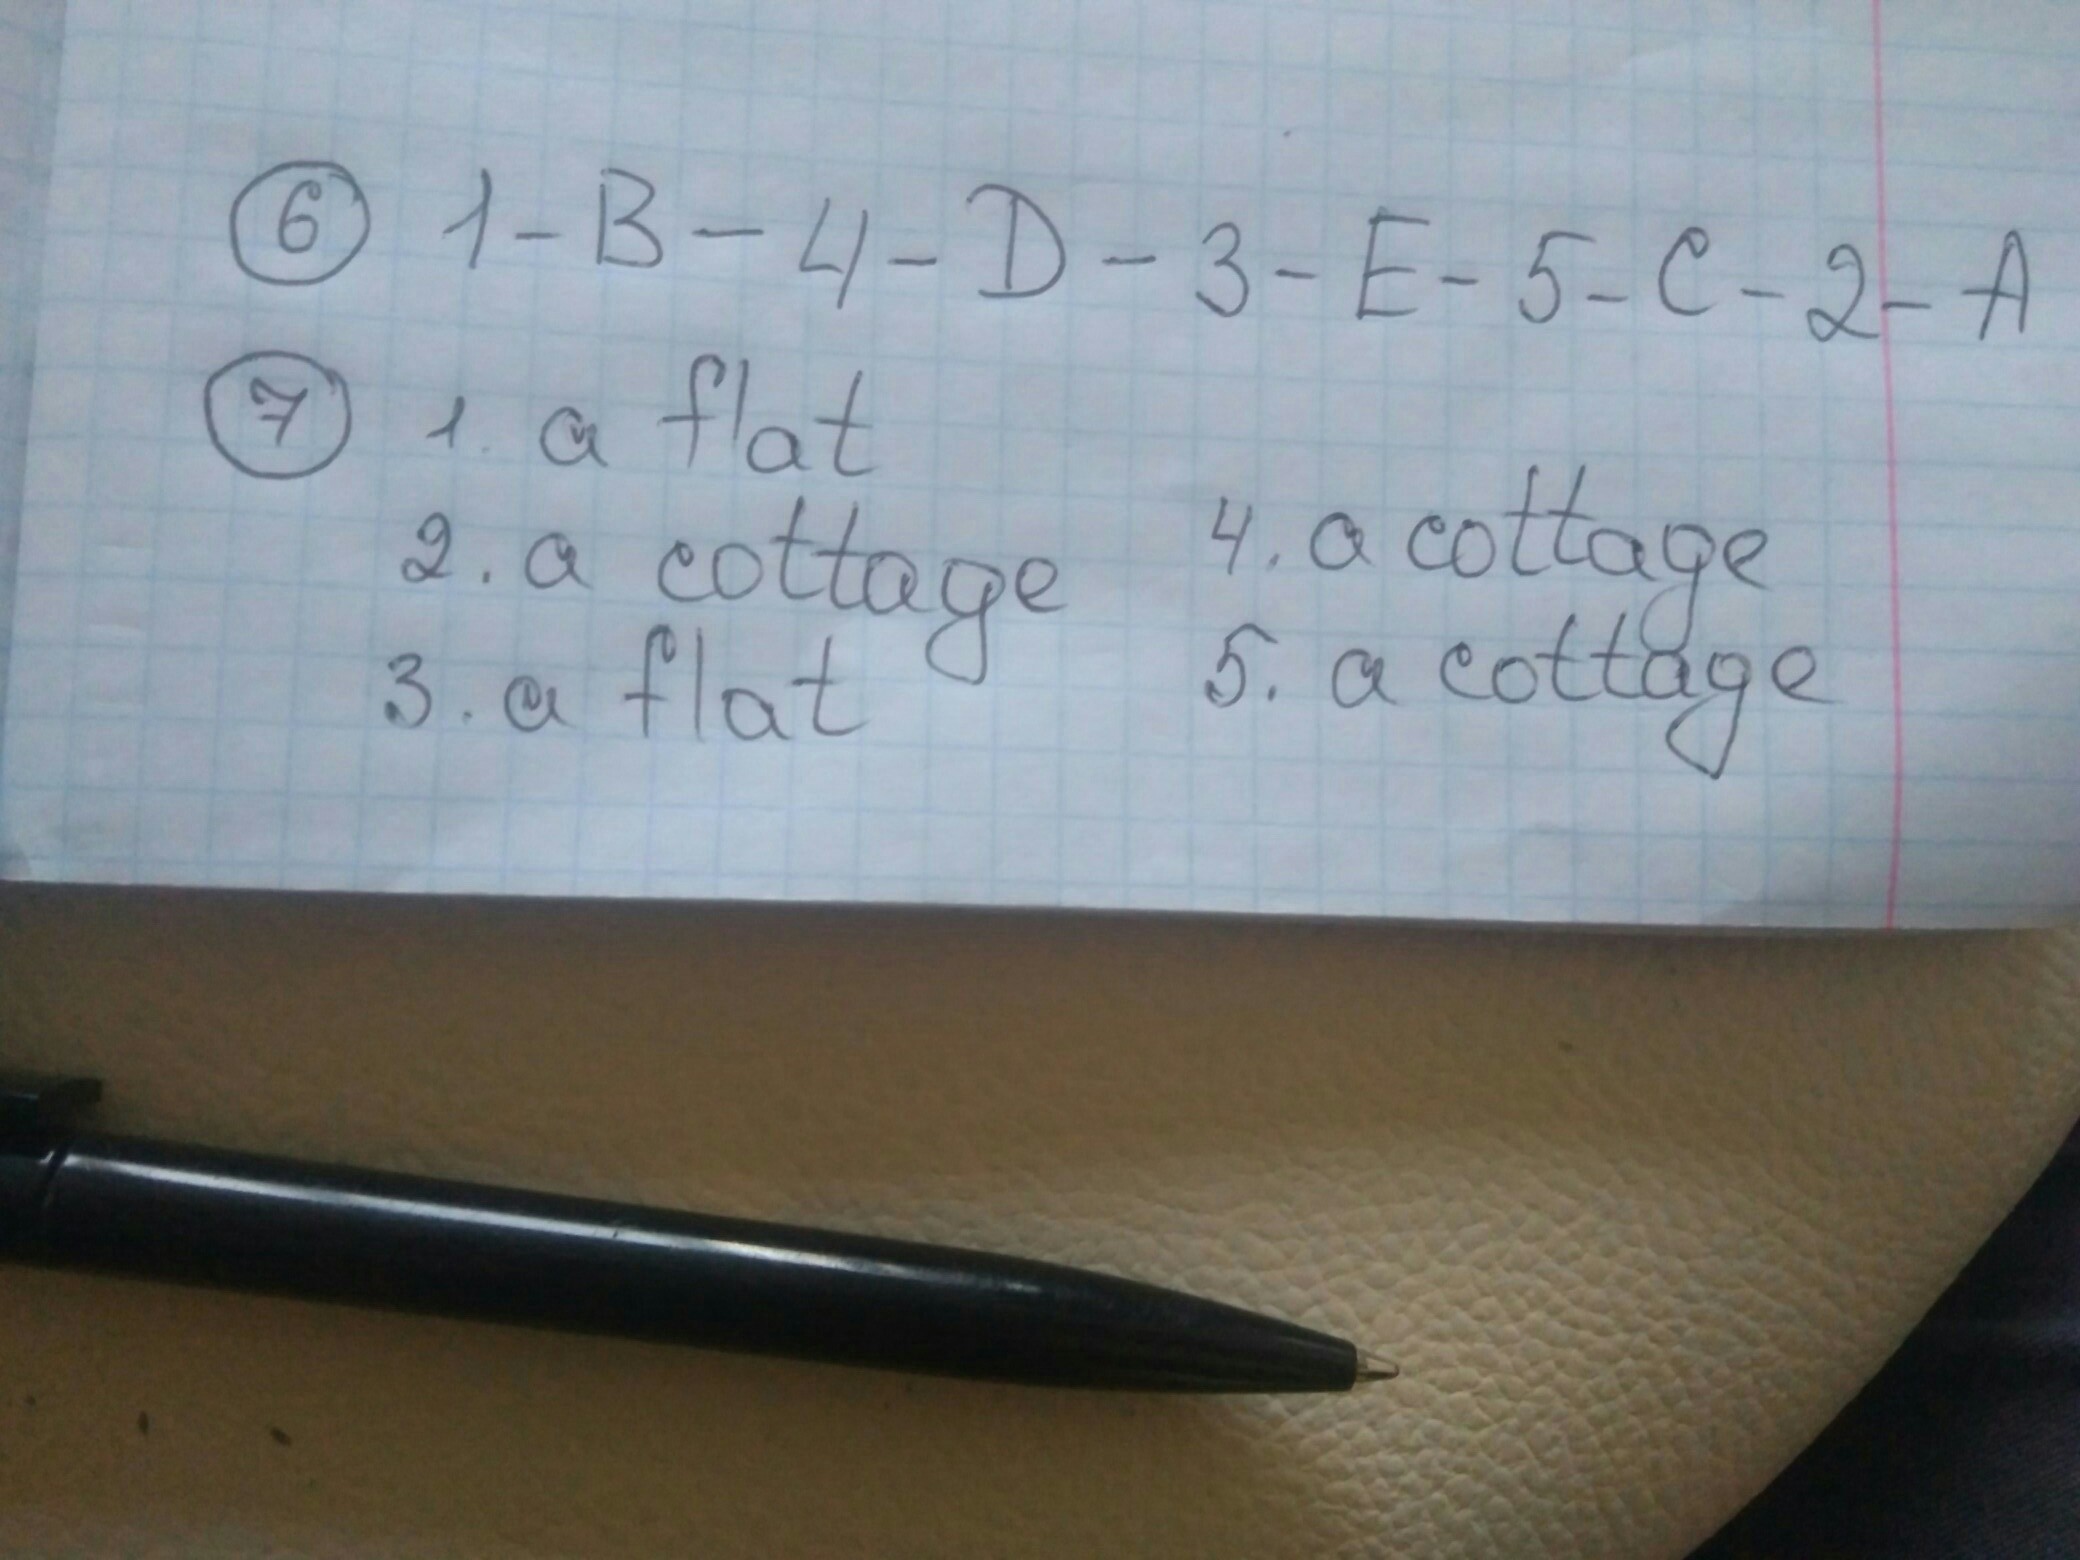 6 1-B-4-D-3-E-5-C-2-A
7 1. a flat
2. a cottage
3. a flat
4. a cottage
5. a cottage